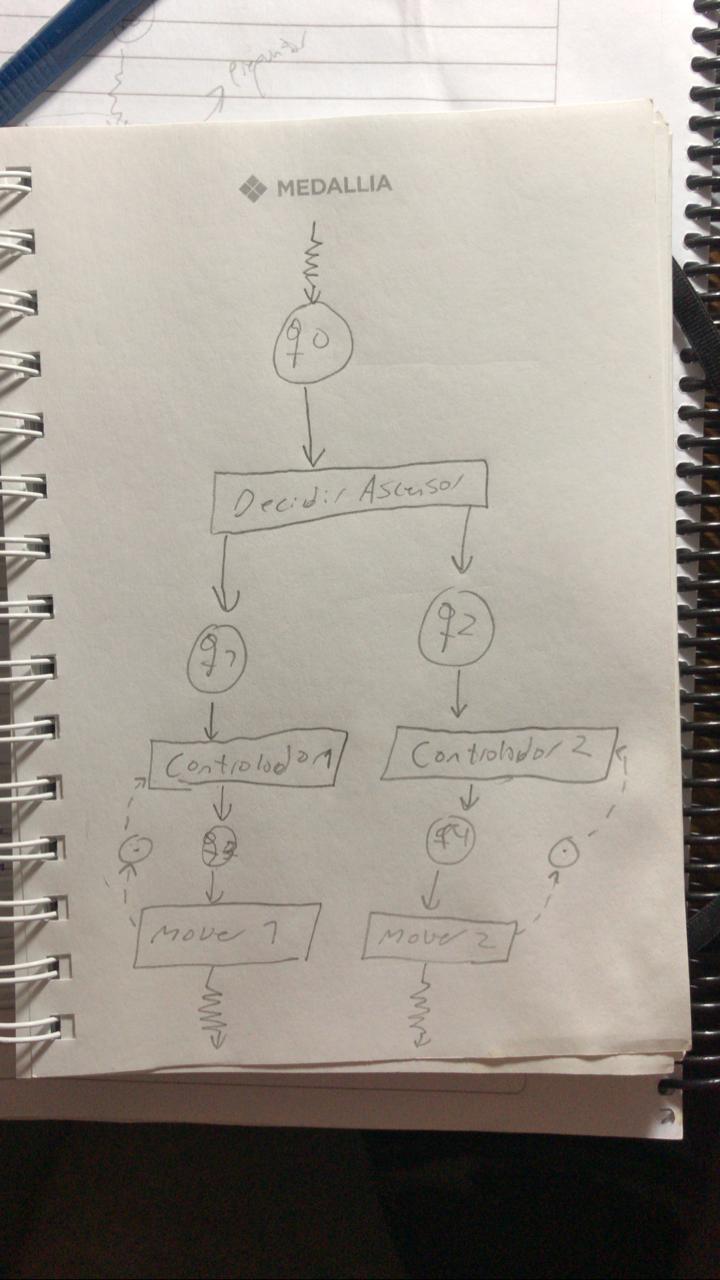 preguntar
MEDALLIA
q0
Decidir Ascensor
q1
q2
Controlador 1
Controlador 2
q3
q4
Mover 1
Mover 2